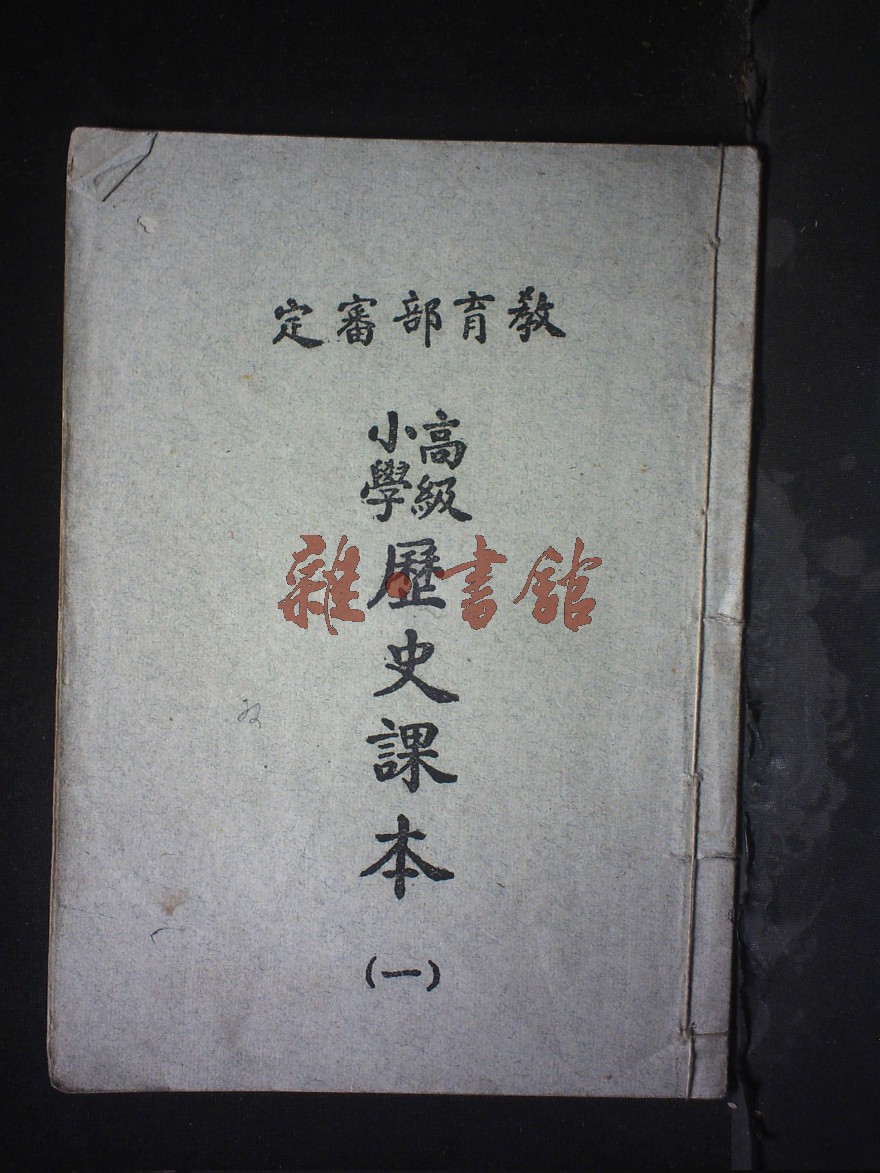 教育部審定
高級
小學
歷史課本
(一)
雜·書館